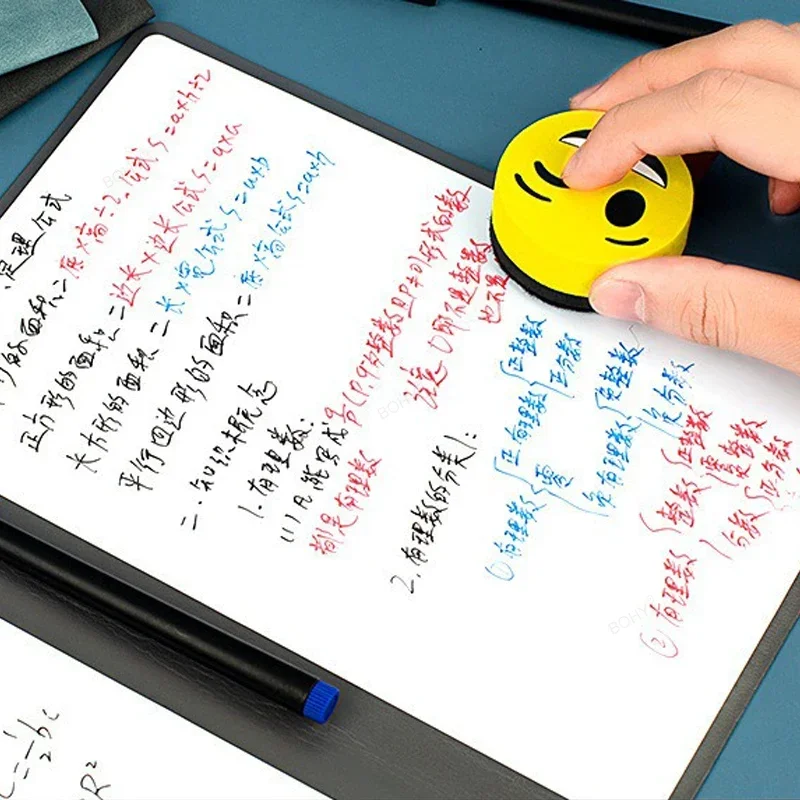 定理公式
的面积=底×高÷2. 公式 S=a×h÷2
正方形的面积=边长×边长 公式 S=a×a
长方形的面积=长×宽 公式 S=a×b
平行四边形的面积=底×高 公式 S=a×h
二.知识和概念
1.有理数:
(1)凡能写成 (P,q为整数且P≠0)形式的数
都是有理数
注意 0即不是整数
也不是
2.有理数的分类:
①有理数
正有理数
正整数
正分数
零
负有理数
负整数
负分数
②有理数
整数
正整数
零
负整数
分数
正分数
BOHY